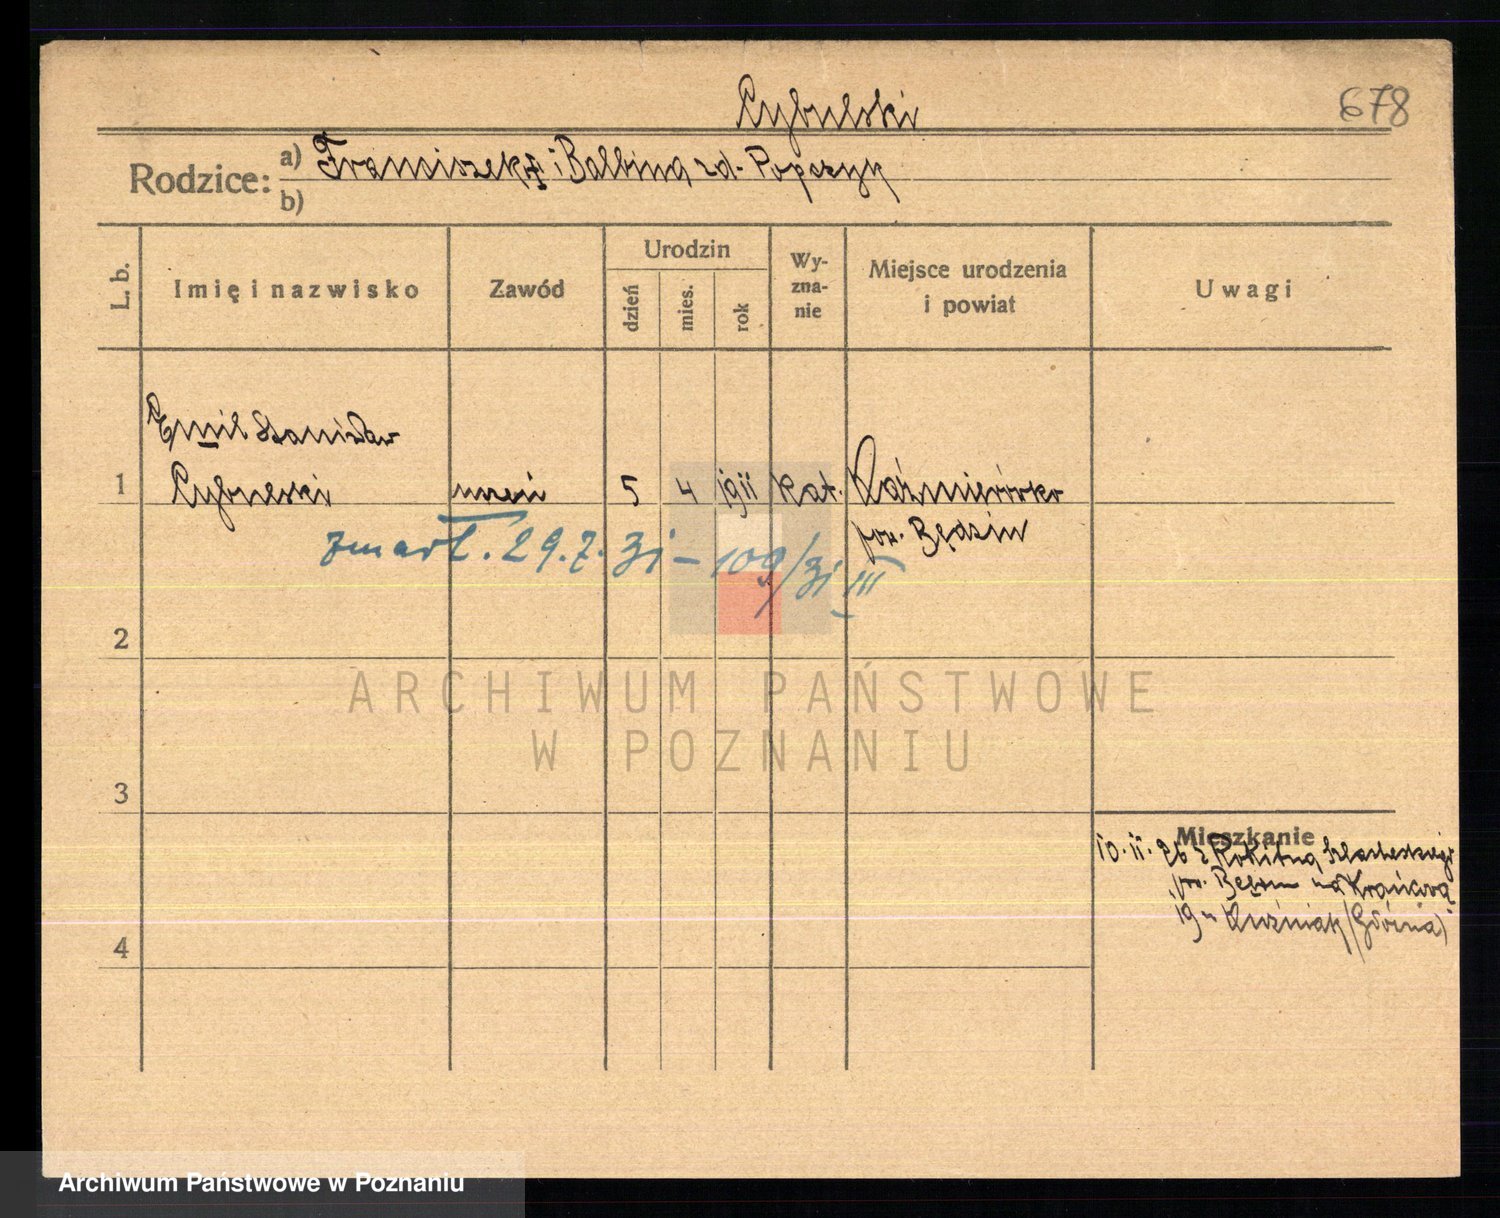 Cybulski
678
Rodzice:
a) Franciszek i Balbina zd. Popczyk
b)
L. b.
Imię i nazwisko
Zawód
Urodzin
dzień
mies.
rok
Wy-
zna-
nie
Miejsce urodzenia
i powiat
Uwagi
Emil Stanisław
1 Cybulski uczeń 5 4 1911 kat. Kaźmierówka
pow. Będzin
zmarł. 29.7.31 – 109/31 III
2
ARCHIWUM PAŃSTWOWE
W POZNANIU
3
Mieszkanie
10.11.26 z Rokitna Szlacheckiego
pow. Będzin na
19 Kuźniak (Górna)
4
Archiwum Państwowe w Poznaniu